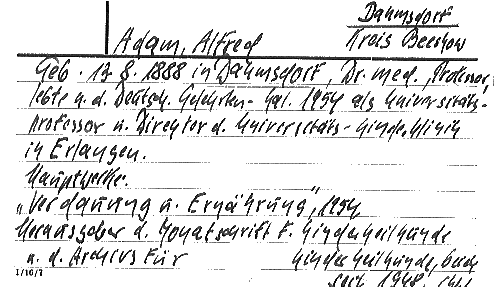 Dahmsdorf
Adam, Alfred Kreis Beeskow
Geb. 13.8.1888 in Dahmsdorf, Dr. med., Professor,
lebte n. d. Deutsch. Gelehrten-Kal. 1954 als Universitäts-
professor u. Direktor d. Universitäts-Kinderklinik
in Erlangen.
Hauptwerke:
"Verdauung u. Ernährung", 1954
Herausgeber d. Monatschrift f. Kinderheilkunde
u. d. Archivs für Kinderheilkunde, beide
seit 1948.